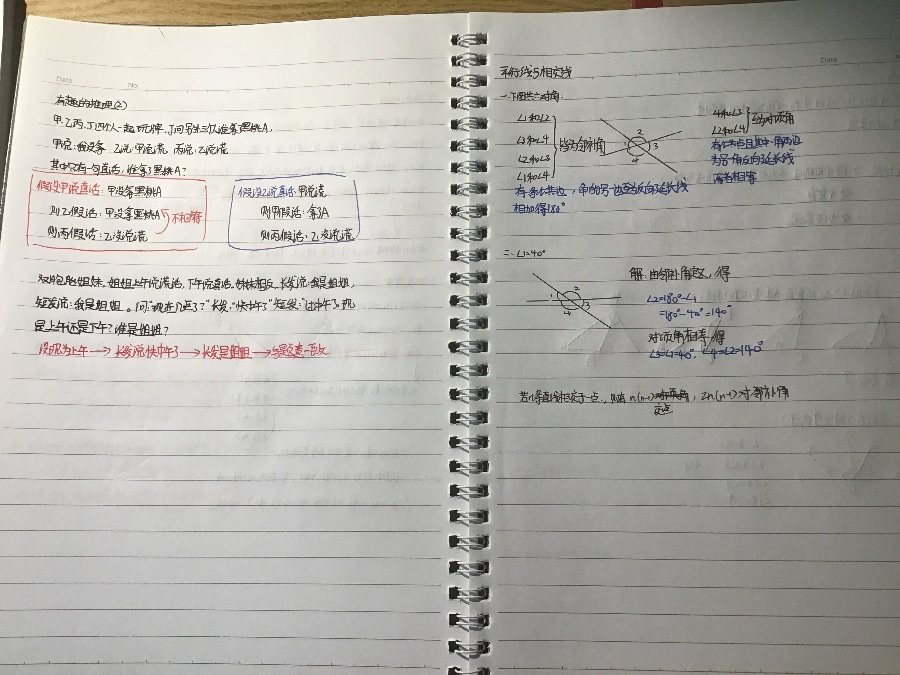 Date
No.
有趣的推理(2)
甲、乙、丙、丁四个人一起玩牌,丁问另外三人谁拿黑桃A,
甲说:我没拿 乙说:甲说谎 丙说:乙说谎
其中只有一句真话,谁拿了黑桃A?
假设甲说真话:甲没拿黑桃A
则乙假话:甲没拿黑桃A
不矛盾
则丙假话:乙没说谎
假设乙说真话:甲说谎
则甲假话:拿了A
则丙假话:乙没说谎
双胞胎姐妹,姐姐上午说谎话,下午说真话,妹妹相反,长发说:我是姐姐,
短发说:我是姐姐。问:"现在几点了?"长发:"快中午了"短发:"过中午了,现
是上午还是下午?谁是姐姐?
设现为上午→长发说快中午了→长发是姐姐→与题意不一致
Date
平行线与相交线
一.下图共六对角:
∠1和∠2
∠3和∠4
∠2和∠3
∠1和∠4
皆为邻补角
有一条公共边,
相加得180°
2
3
4
∠1和∠3
∠2和∠4
皆为对顶角
有公共点且其中一角两边
为另一角的反向延长线
两者相等
二.∠1=40°
1
2
3
4
解:由邻补角定义,得
∠2=180°-∠1
=180°-40°=140°
对顶角相等,得
∠3=∠1=40°,∠4=∠2=140°
若n条直线相交于一点,则有n(n-1)对,2n(n-1)对邻补角